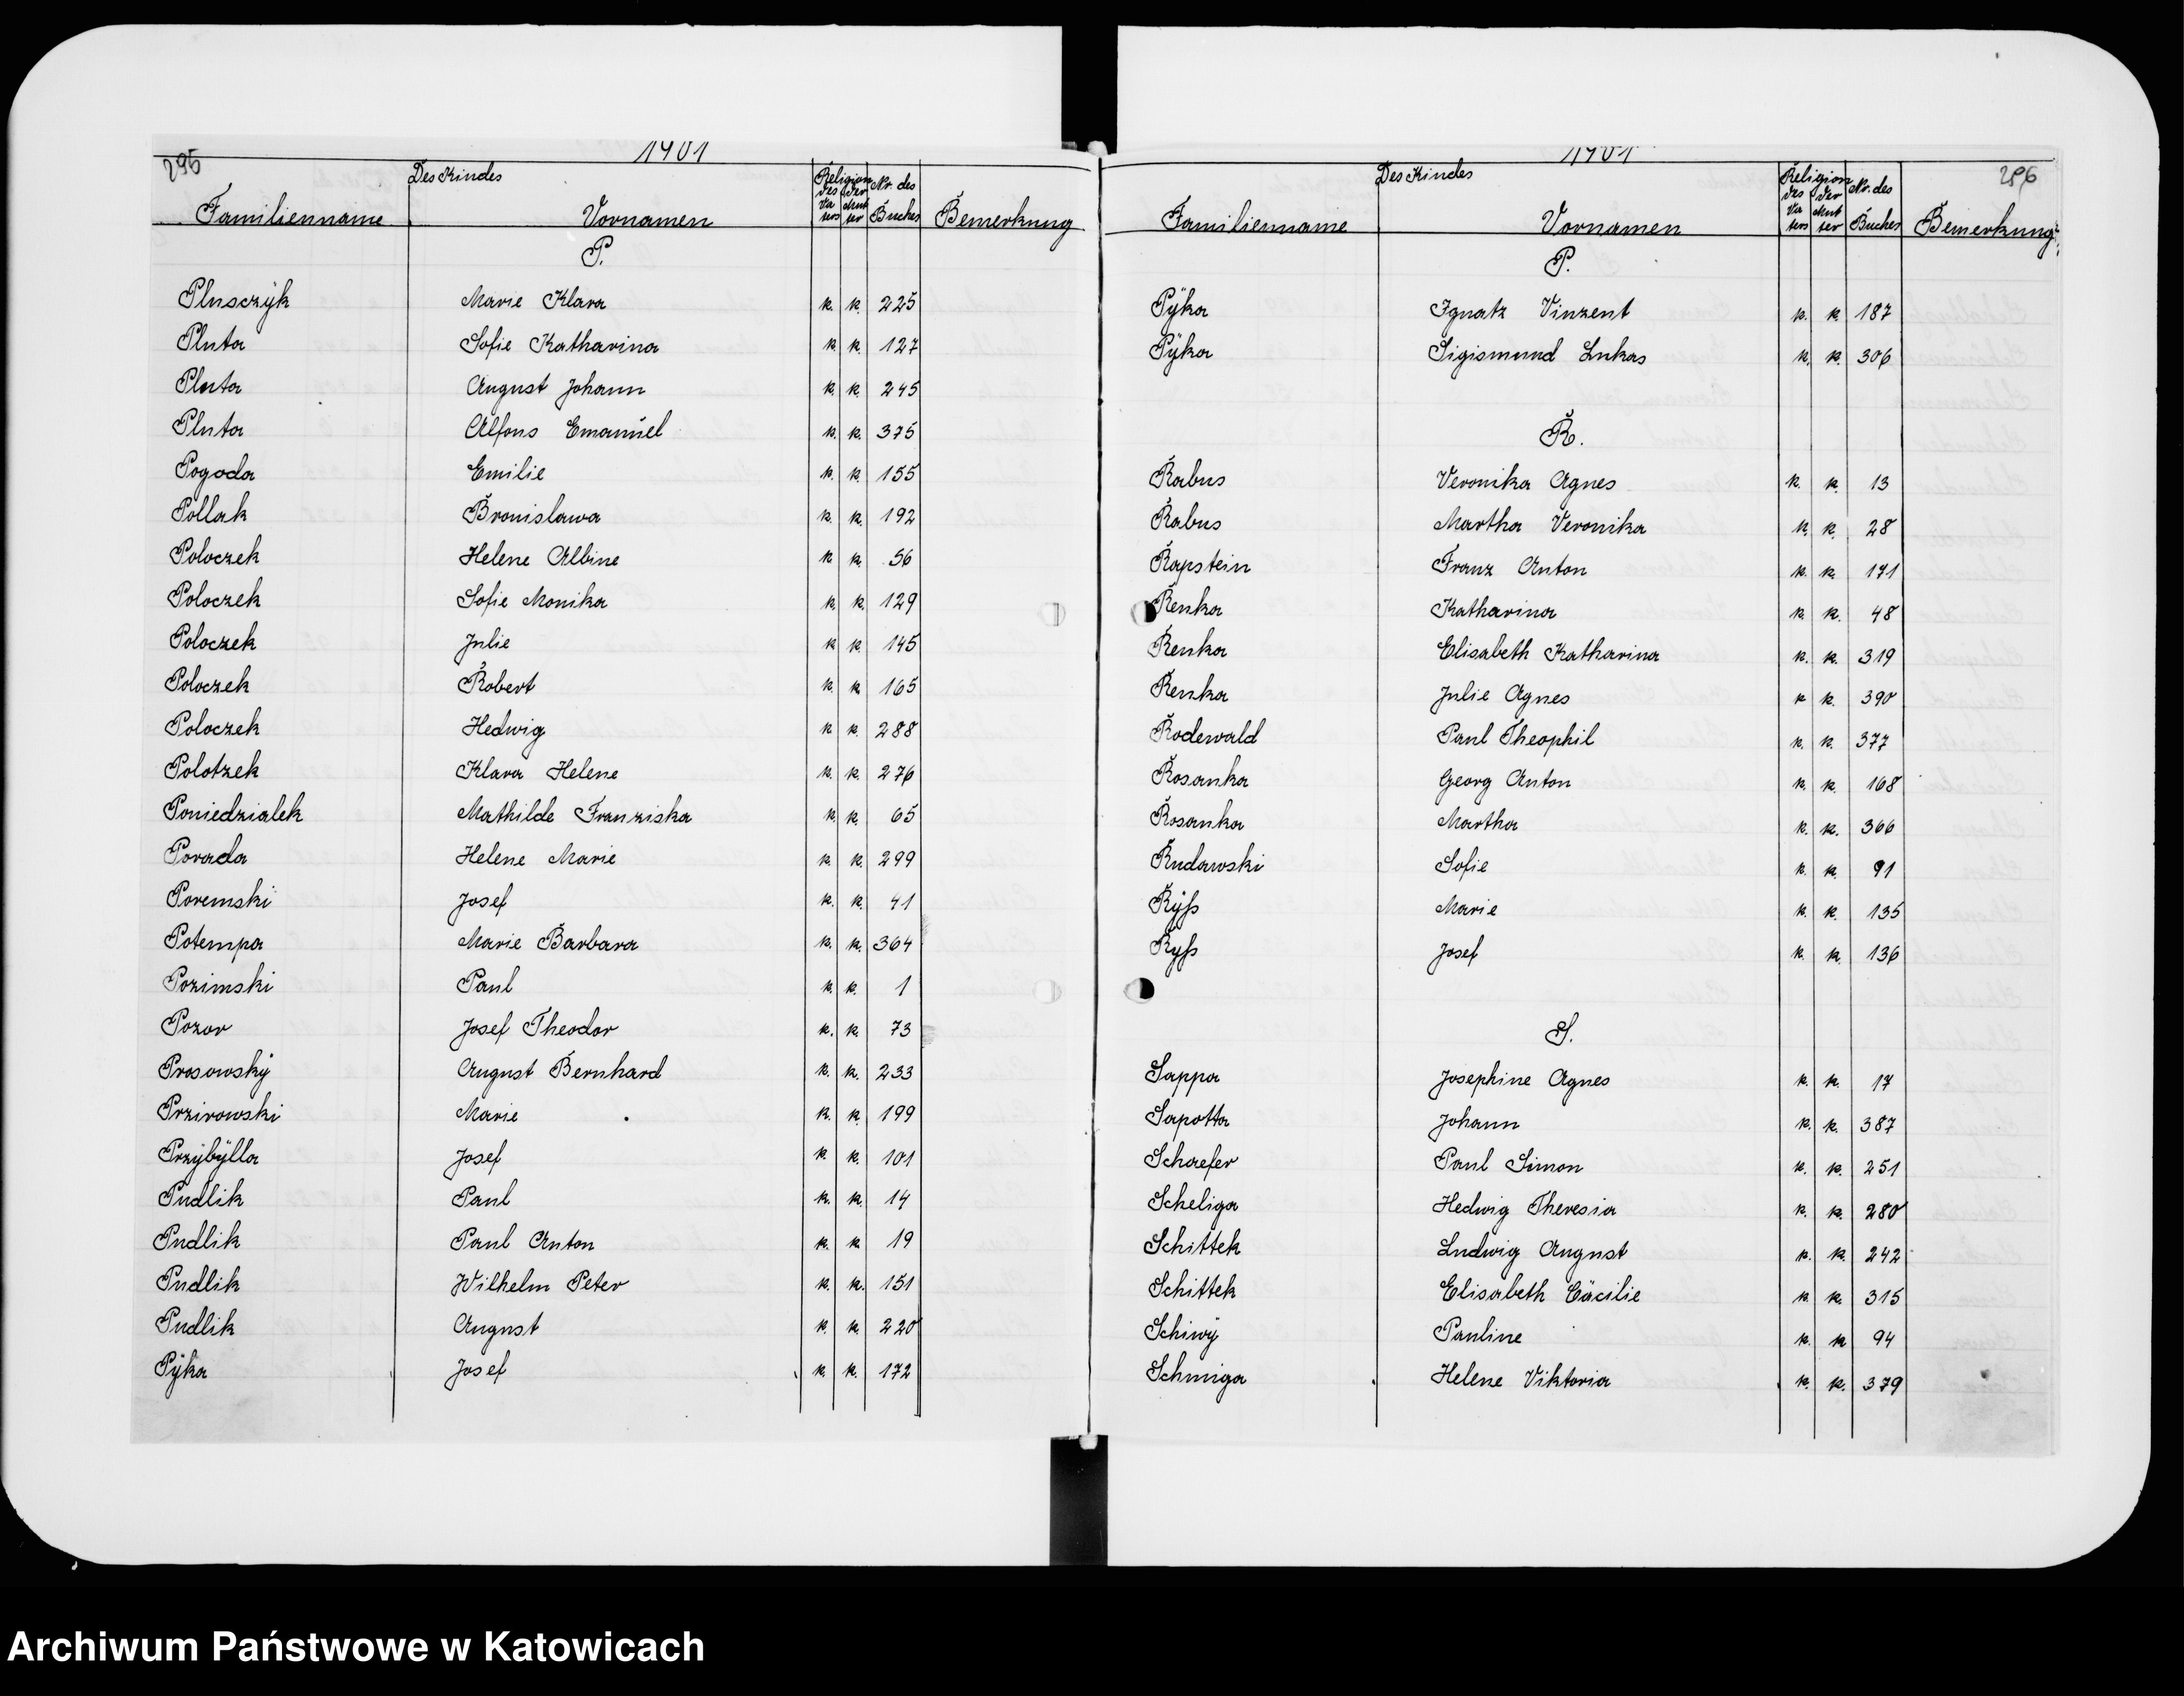 295
1901
Des Kindes
Religion des Vaters der Mutter
Nr. des Buches
Familienname Vornamen Bemerkung
P.
Plusczÿk Marie Klara k. k. 225
Pluta Sofie Katharina k. k. 127
Pluta August Johann k. k. 245
Pluta Alfons Emanuel k. k. 375
Pogoda Emilie k. k. 155
Pollak Bronislawa k. k. 192
Poloczek Helene Albine k k. 56
Poloczek Sofie Monika k. k. 129
Poloczek Julie k k. 145
Poloczek Robert k. k 165
Poloczek Hedwig k k. 288
Polotzek Klara Helene k. k. 276
Poniedzialek Mathilde Franziska k. k. 65
Porada Helene Marie k. k. 299
Poremski Josef k. k. 41
Potempa Marie Barbara k. k. 364
Pozimski Paul k. k. 1
Pozor Josef Theodor k. k. 73
Prosowskÿ August Bernhard k. k. 233
Przirowski Marie k. k. 199
Przÿbÿlla Josef k. k. 101
Pudlik Paul k. k. 14
Pudlik Paul Anton k. k 19
Pudlik Wilhelm Peter k. k. 151
Pudlik August k. k. 220
Pÿka Josef k. k. 172
1901
296
Des Kindes
Religion des Vaters der Mutter
Nr. des Buches
Familienname Vornamen Bemerkung
P.
Pÿka Ignatz Vinzent k. k. 187
Pÿka Sigismund Lukas k. k. 306
R.
Rabus Veronika Agnes k. k. 13
Rabus Martha Veronika k. k. 28
Rapstein Franz Anton k. k. 171
Renka Katharina k. k. 48
Renka Elisabeth Katharina k. k. 319
Renka Julie Agnes k k. 390
Rodewald Paul Theophil k. k. 377
Rosanka Georg Anton k. k. 168
Rosanka Martha k. k. 366
Rudawski Sofie k. k. 91
Rÿß Marie k. k. 135
Ryß Josef k. k. 136
S.
Sappa Josephine Agnes k. k. 17
Sapotta Johann k. k. 387
Schaefer Paul Simon k. k. 251
Scheliga Hedwig Theresia k. k. 280
Schittek Ludwig August k. k. 242
Schittek Elisabeth Cäcilie k. k. 315
Schiwÿ Pauline k. k 94
Schmiga Helene Viktoria k. k. 379
Archiwum Państwowe w Katowicach